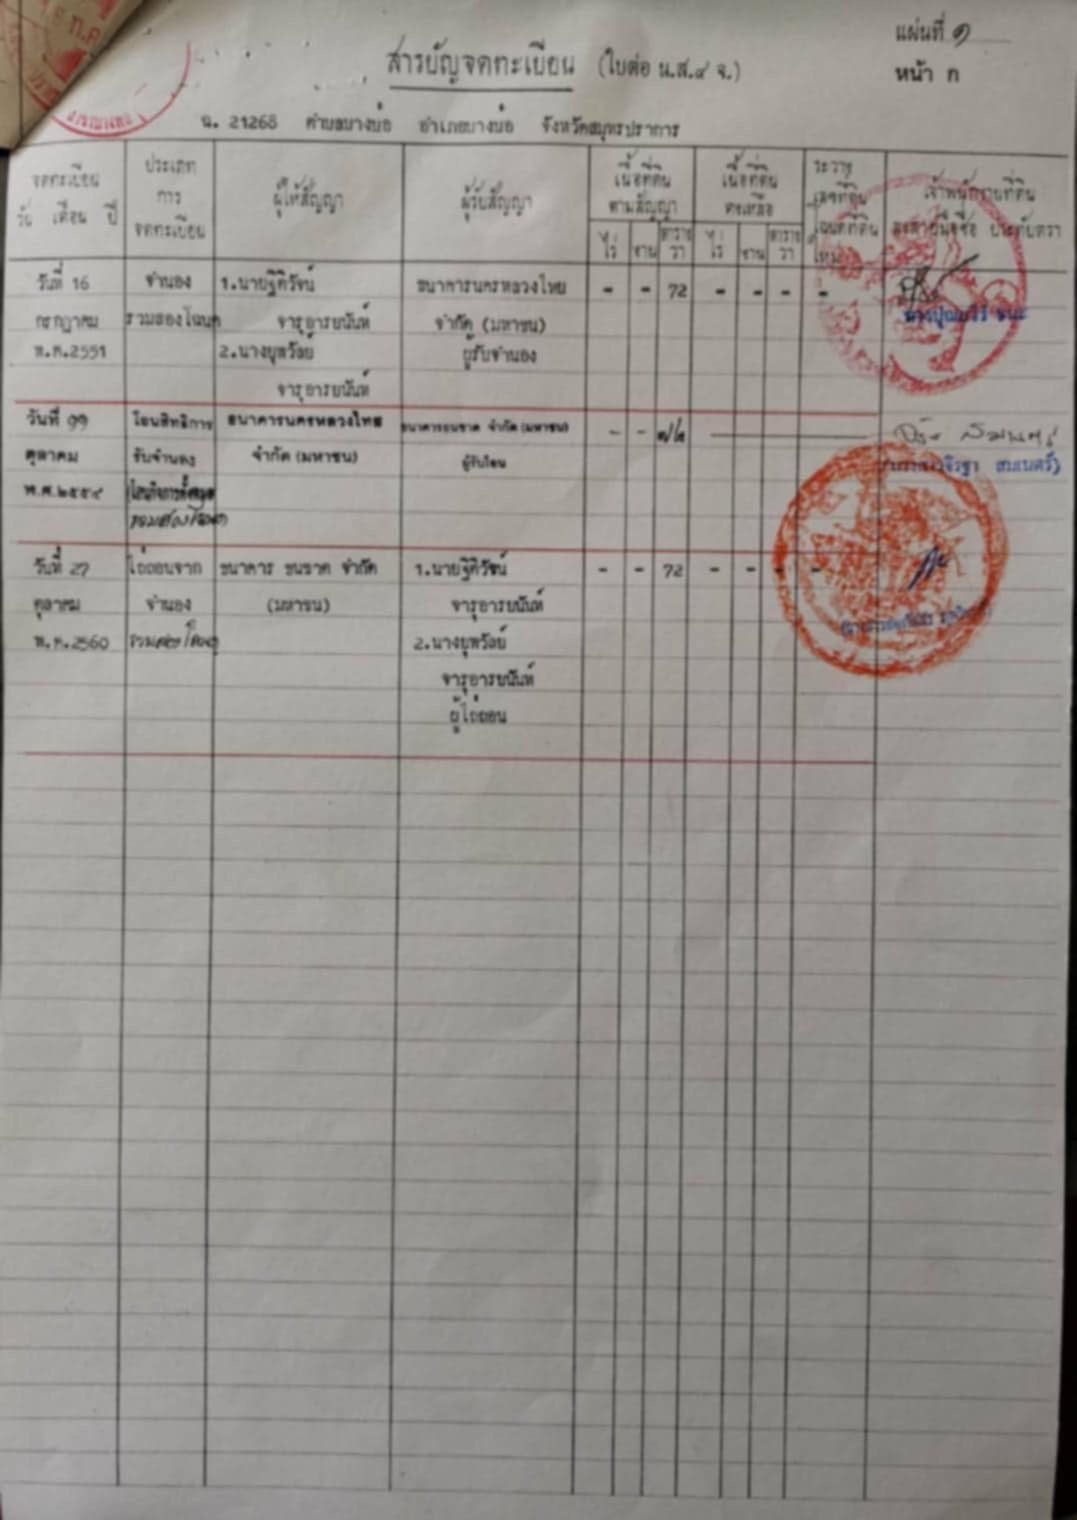 แผ่นที่ ๑
สารบัญจดทะเบียน (ใบต่อ น.ส.๔ จ.)
หน้า ก
ฉ. 21268 ตำบลบางบ่อ อำเภอบางบ่อ จังหวัดสมุทรปราการ
จดทะเบียน
วัน เดือน ปี
ประเภท
การ
จดทะเบียน
ผู้ให้สัญญา
ผู้รับสัญญา
เนื้อที่ดิน
ตามสัญญา
ไร่ งาน ตาราง
วา
เนื้อที่ดิน
คงเหลือ
ไร่ งาน ตาราง
วา
ระวาง
เลขที่ดิน
โฉนดที่ดิน
ใหม่
เจ้าพนักงานที่ดิน
ลงลายมือชื่อ ประทับตรา
วันที่ 16 จำนอง 1.นายฐิติวัจน์ ธนาคารนครหลวงไทย - - 72 - - - -
กรกฎาคม รวมสองโฉนด จารุอารยนันท์ จำกัด (มหาชน)
พ.ศ.2551 2.นางยุพวัลย์ ผู้รับจำนอง
จารุอารยนันท์
วันที่ ๑๑ โอนสิทธิการ ธนาคารนครหลวงไทย ธนาคารธนชาต จำกัด (มหาชน) - - ๗๒
ตุลาคม รับจำนอง จำกัด (มหาชน) ผู้รับโอน
พ.ศ.๒๕๕๔
รวมสองโฉนด
วันที่ 27 ไถ่ถอนจาก ธนาคาร ธนชาต จำกัด 1.นายฐิติวัจน์ - - 72 - - - -
ตุลาคม จำนอง (มหาชน) จารุอารยนันท์
พ.ศ.2560 รวมสองโฉนด 2.นางยุพวัลย์
จารุอารยนันท์
ผู้ไถ่ถอน